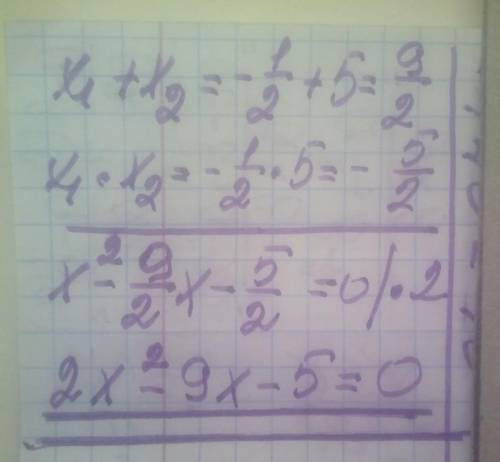 x₁ + x₂ = -1/2 + 5 = 9/2
x₁ · x₂ = -1/2 · 5 = - 5/2
x² - 9/2 x - 5/2 = 0 / · 2
2x² - 9x - 5 = 0